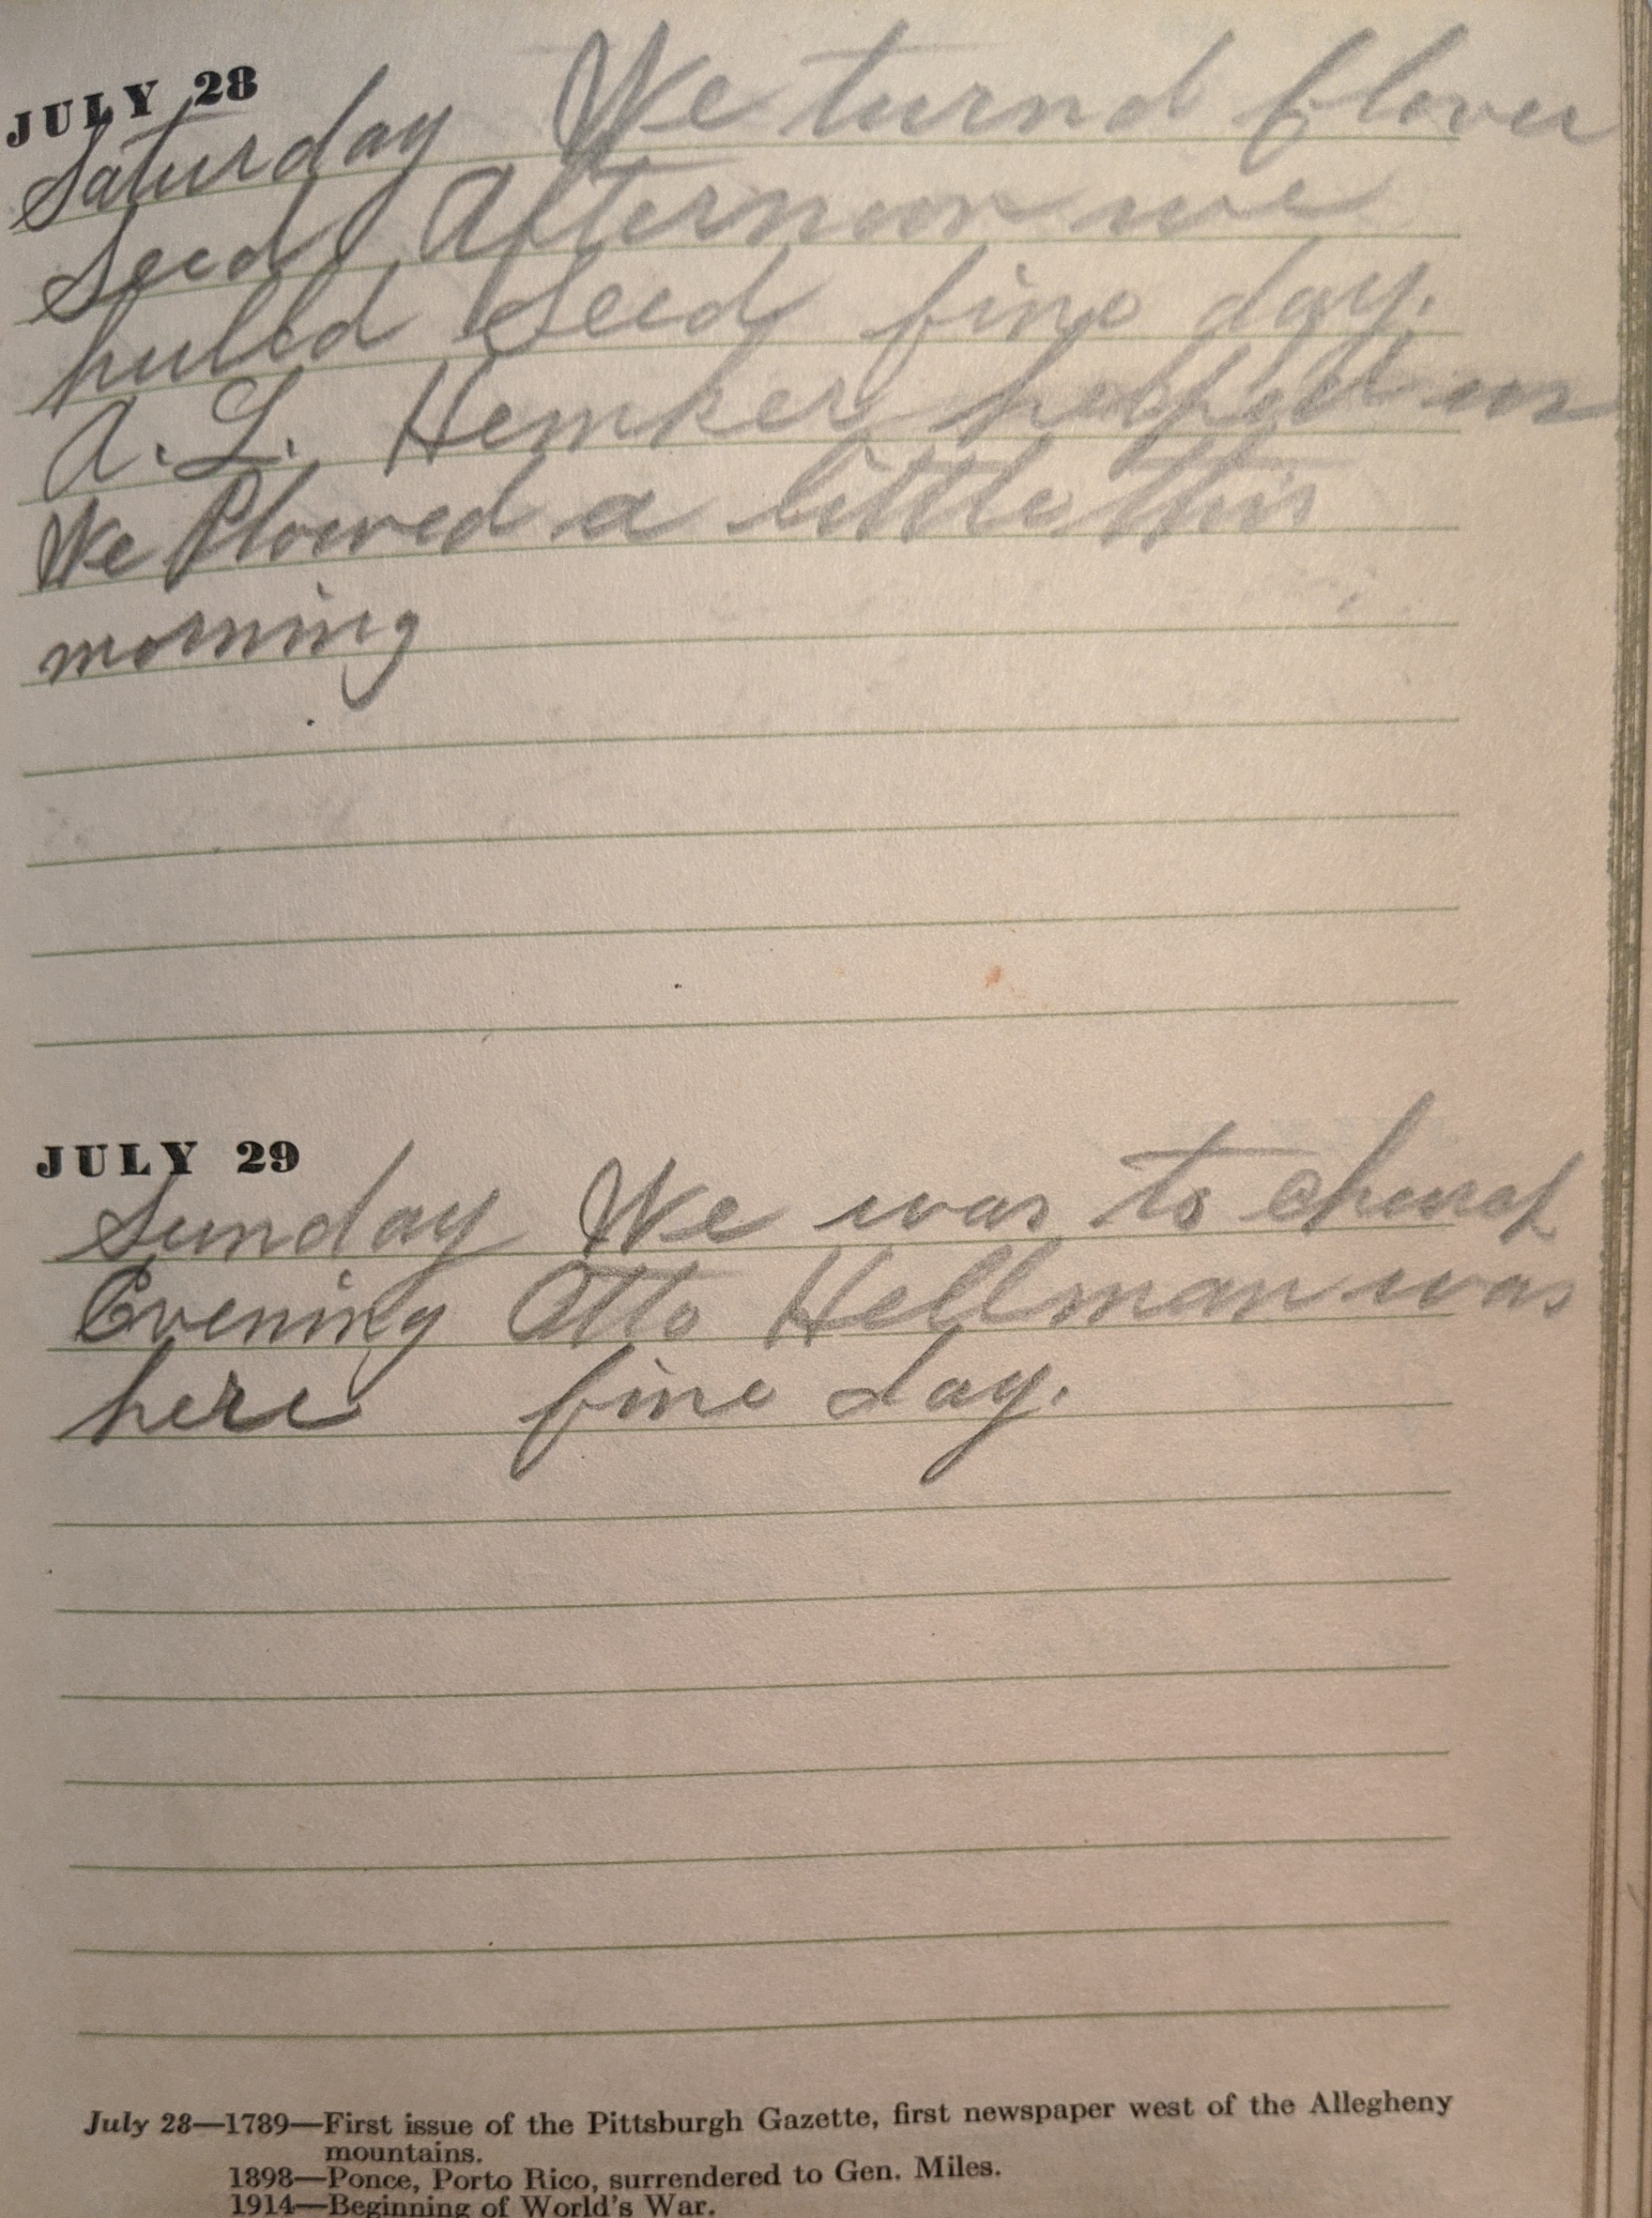 JULY 28
Saturday We turnd flover
Seed Afternoon we
hulld Seed fine day.
A. L. Hemker helped us
We Plowed a little this
morning
JULY 29
Sunday We was to church
Evening Otto Hellman was
here fine day.
July 28—1789—First issue of the Pittsburgh Gazette, first newspaper west of the Allegheny
mountains.
1898—Ponce, Porto Rico, surrendered to Gen. Miles.
1914—Beginning of World's War.